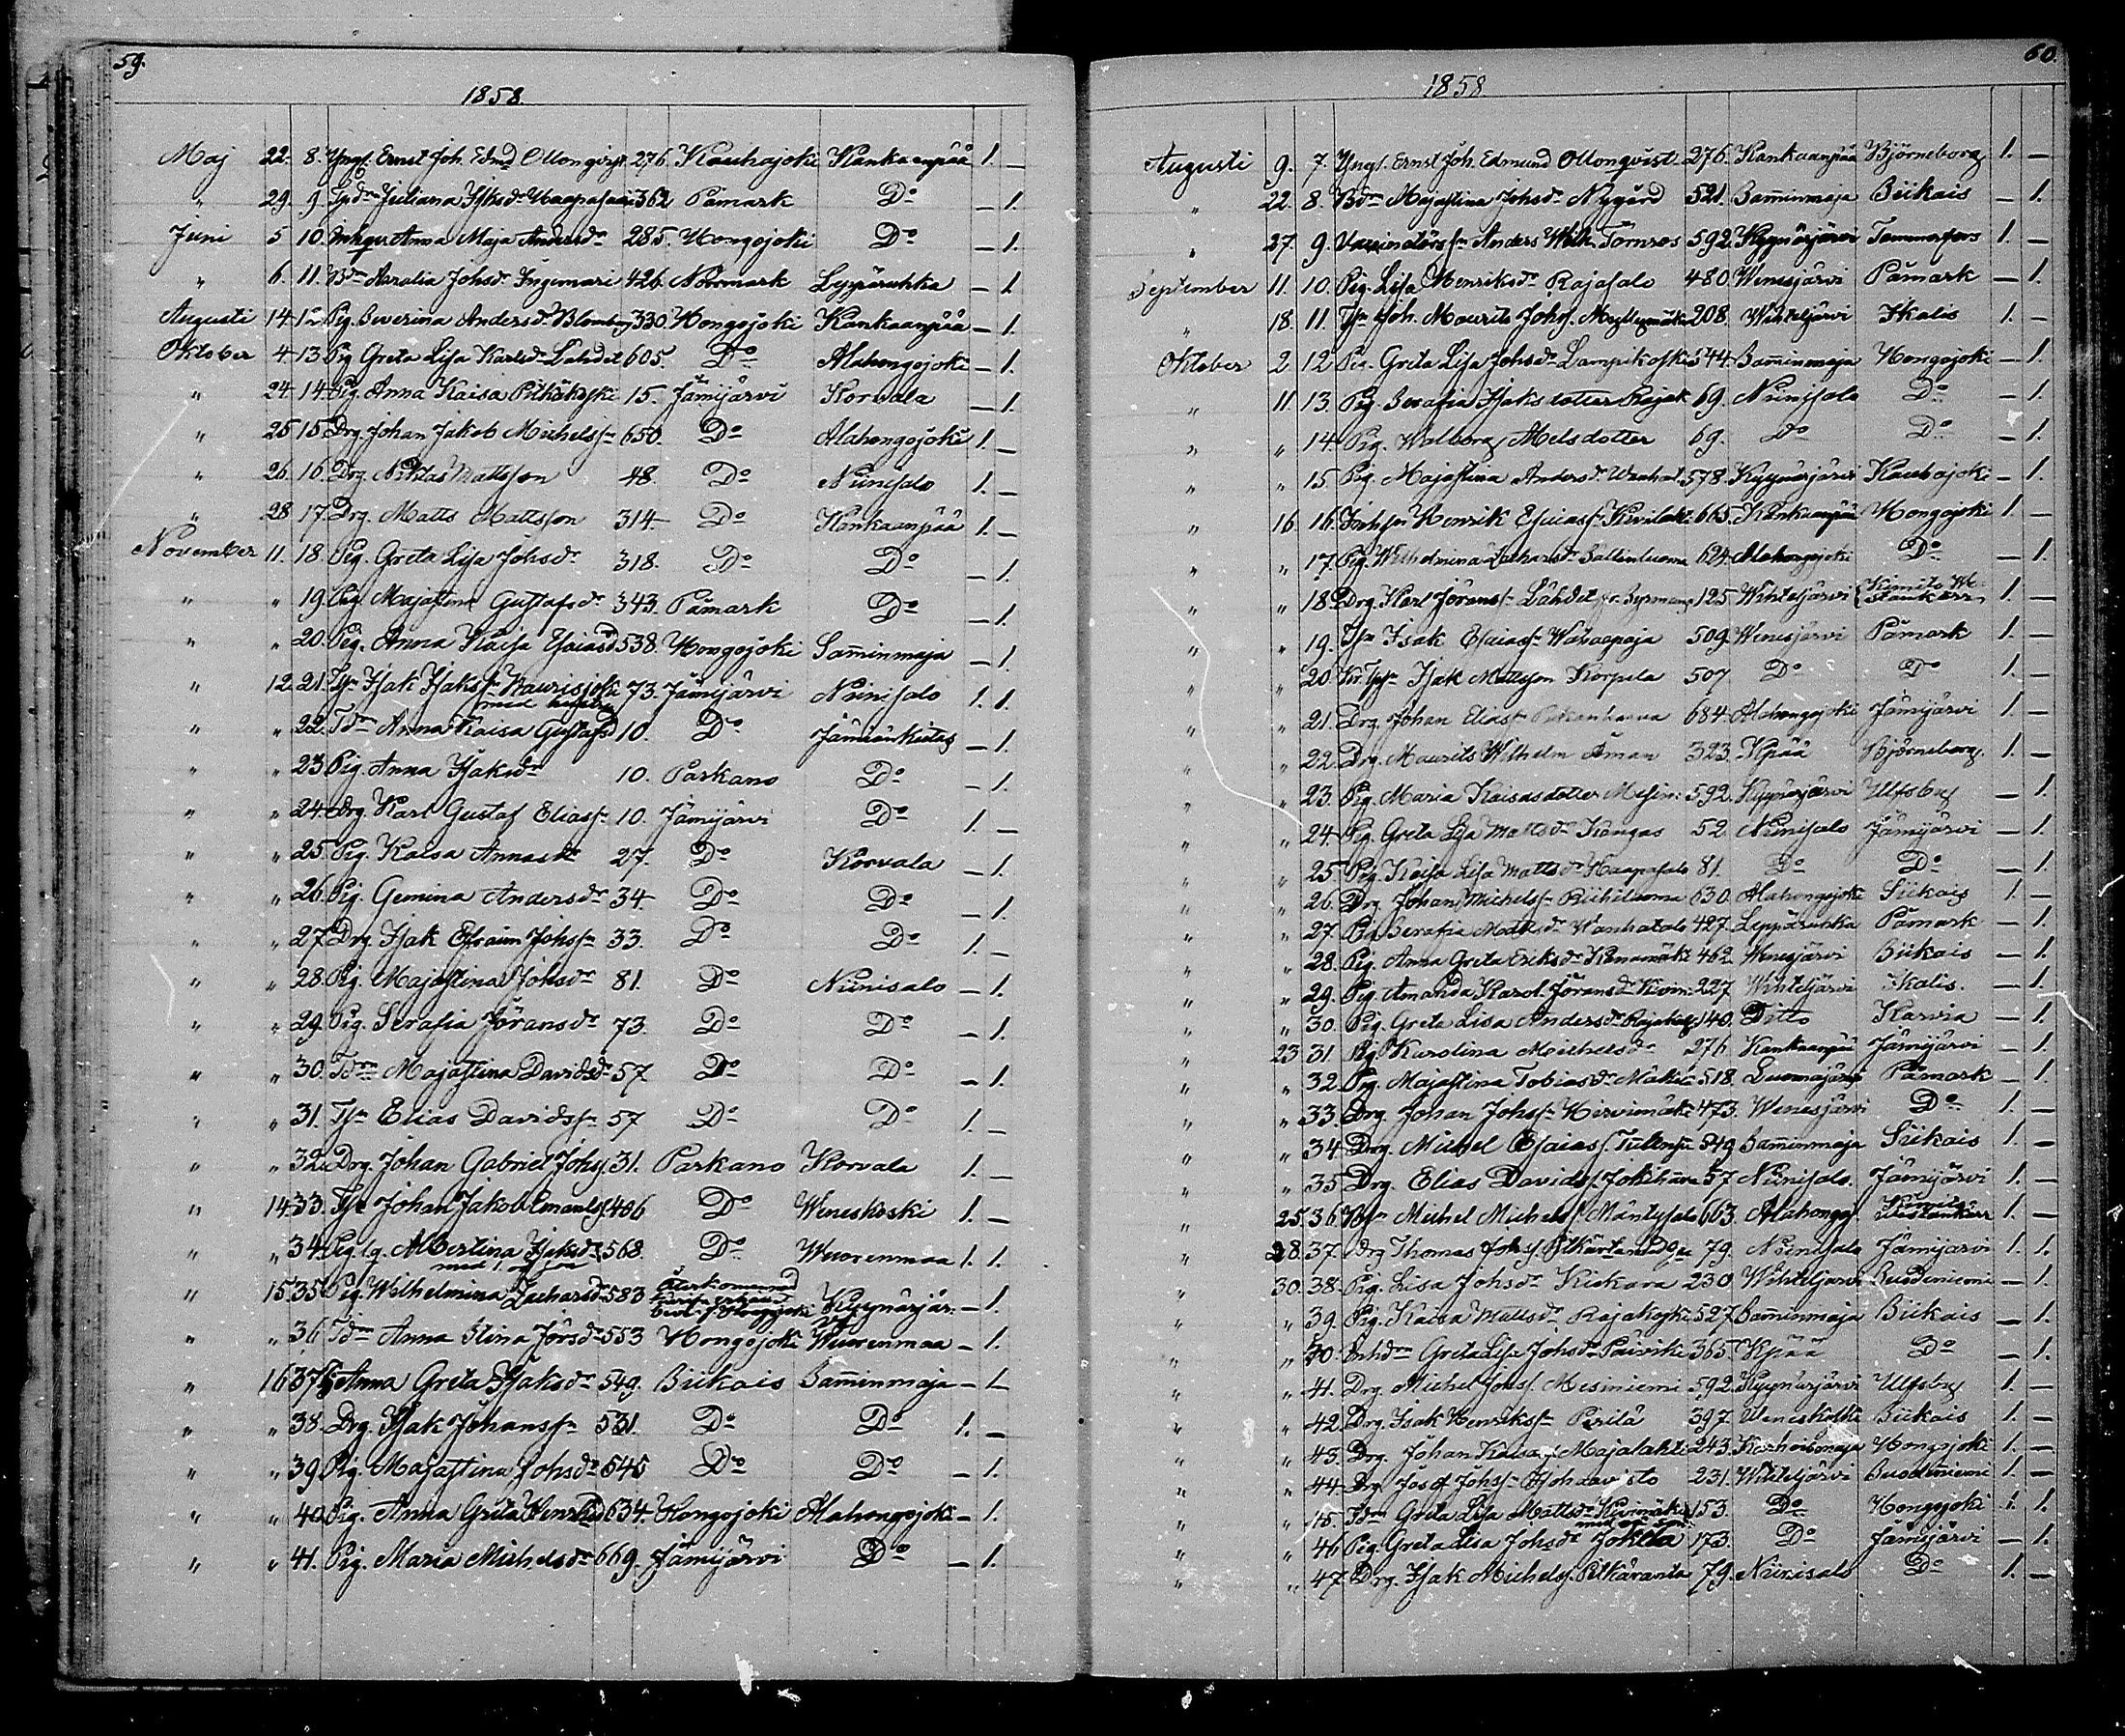 59.
1858.
Maj 22. 8. Yngl. Ernst Joh. Edmd Ollonqvist 276. Kauhajoki Kankaanpää 1. —
" 29. 9. Juliana Isaksdr Haapasaari 362 Påmark Do — 1.
Juni 5 10. Anna Maja Andersdr 285. Hongojoki Do — 1.
" 6. 11. Johsdr Ingemari 426. Norrmark Leppäruhka — 1
Augusti 14 12 Pig. Severina Andersdr Blomberg 330. Hongojoki Kankaanpää — 1.
Oktober 4 13 Pig Greta Lisa Karlsdr Lahdet 605. Do Alahongojoki — 1.
" 24. 14. Pig. Anna Kaisa Pitkäkoski 15. Jämijärvi Korvala — 1.
" 25 15. Drg. Johan Jakob Michelsson 650. Do Alahongojoki 1. —
" 26. 16. Drg. Niklas Mattsson 48. Do Niinisalo 1. —
" 28 17. Drg. Matts Mattsson 314 Do Kankaanpää 1. —
November 11. 18. Pig. Greta Lisa Johsdr 318. Do Do — 1.
" " 19. Pig. Majastina Gustafsdr 343. Påmark Do — 1.
" " 20. Pig. Anna Kaisa Esaiasd 538. Hongojoki Samminmaja — 1.
" 12. 21. Isak Isakss Kaurisjoki 73. Jämijärvi Niinisalo 1. 1.
med hustru
" " 22. Tdrn Anna Kaisa Gustafsd 10. Do Jämiänkeidas — 1.
" " 23 Pig. Anna Isaksdr 10. Parkano Do — 1.
" " 24. Drg. Karl Gustaf Eliass 10. Jämijärvi Do 1. —
" " 25. Pig. Kaisa Annasdr 27. Do Korvala — 1.
" " 26. Pig. Gemina Andersdr 34 Do Do — 1.
" " 27. Drg. Isak Efraim Johss 33. Do Do 1. —
" " 28. Pig. Majastina Johsdr 81. Do Niinisalo — 1.
" " 29. Pig. Serafia Jöransdr 73. Do Do — 1.
" " 30. Tdrn Majastina Davidsdr 57 Do Do — 1.
" " 31. Tsn Elias Davidss 57 Do Do 1. —
" " 32. Drg. Johan Gabriel Johss. 31. Parkano Korvala 1. —
" 14. 33. Johan Jakob Emanuelss. 406 Do Weneskoski 1. —
" " 34. Albertina Isaksdr 568. Do Wuorenmaa 1. 1.
" 15. 35 Pig. Wilhelmina Zacharsdr 583 Hongojoki Kyynärjär. — 1.
" " 36 Tdrn Anna Stina Jörsdr 553 Hongojoki Wuorenmaa — 1.
" 16 37 Anna Greta Isaksdr 549. Siikais Samminmaja — 1
" " 38. Drg. Isak Johanss 531. Do Do 1. —
" " 39. Pig. Majastina Johsdr 545 Do Do — 1.
" " 40. Pig. Anna Greta Henriksd 634. Hongojoki Alahongojoki — 1.
" " 41. Pig. Maria Michelsdr 669. Jämijärvi Do — 1.
60.
1858
Augusti 9. 7. Yngl. Ernst Joh. Edmund Ollonqvist 276. Kankaanpää Björneborg 1. —
" 22. 8. Majastina Johsdr Nygård 521. Samminmaja Siikais — 1.
" 27. 9. Vaccinatörs Anders Wilh. Törnros 592. Kyynärjärvi Tammerfors 1. —
September 11. 10. Pig. Lisa Henriksdr Rajasalo 480. Wenesjärvi Påmark — 1.
" 18. 11. Tsn Joh. Maurits Johs. Myllymäki 208. Wihteljärvi Ikalis 1. —
Oktober 2 12 Pig. Greta Lisa Johsdr Lampikoski 544. Samminmaja Hongojoki — 1.
" 11. 13. Pig. Serafia Isaksdotter Rajak 69. Niinisalo Do — 1.
" " 14. Pig. Walborg Melsdotter 69. Do Do — 1.
" " 15. Pig. Majastina Andersdr 578. Kyynärjärvi Kauhajoki — 1.
" 16. 16. Henrik Esaiass 665. Kankaanpää Hongojoki 1. —
" " 17. Pig. Wilhelmina Zacharsdr Sallinluoma 624. Alahongojoki Do — 1.
" " 18. Drg. Karl Jöranss Lähdet 125. Wihteljärvi Kimito 1. —
" " 19. Tsn Isak Esaiass Wävaapaja 509. Wenesjärvi Påmark 1. —
" " 20. Isak Mattsson Korpela 507 Do Do 1. —
" " 21. Drg. Johan Eliass 684. Alahongojoki Jämijärvi 1. —
" " 22. Drg. Maurits Wilhelm Åman 323. Kpää Björneborg. 1. —
" " 23. Pig. Maria Kaisasdotter Mesin: 592. Kyynärjärvi Ulfsby — 1.
" " 24. Pig. Greta Lisa Mattsdr Kangas 52. Niinisalo Jämijärvi — 1.
" " 25 Pig. Kaisa Lisa Mattsdr Haapasalo 81. Do Do — 1.
" " 26. Drg. Johan Michelss Riihiluoma 630. Alahongojoki Siikais 1. —
" " 27. Pig Serafia Mattsdr Wanhatalo 427. Leppäruhka Påmark — 1.
" " 28. Pig. Anna Greta Eriksdr 462. Wenesjärvi Siikais — 1.
" " 29. Pig. Amanda Karol. Jöransdr 227 Wihteljärvi Ikalis. — 1.
" " 30. Pig. Greta Lisa Andersdr 140. Ditto Karvia — 1.
" 23 31. Pig Karolina Michelsdr 276 Kankaanpää Jämijärvi — 1.
" " 32. Pig. Majastina Tobiasdr 518. Luomajärvi Påmark — 1.
" " 33. Drg. Johan Johss Hirvimäki 473. Wenesjärvi Do 1. —
" " 34 Drg. Michel Esaiass. 549 Samminmaja Siikais 1. —
" " 35 Drg. Elias Davidss. Jokihaara 57 Niinisalo. Jämijärvi 1. —
" 25. 36. Michel Michelss. Mäntysalo 663. Alahongoj. Kimito 1. —
" 28. 37. Drg Thomas Johss. Pitkäranta 79. Niinisalo Jämijärvi 1. 1.
" 30. 38. Pig. Lisa Johsdr Kiskara 230 Wihteljärvi Suodiniemi — 1.
" " 39. Pig. Kaisa Mattsdr Rajakoski 527 Samminmaja Siikais — 1.
" " 40. Greta Lisa Johsdr Päiviki 365. Kpää Do — 1.
" " 41. Drg. Michel Johss. Mesiniemi 592. Kyynärjärvi Ulfsby 1. —
" " 42. Drg. Isak Henrikss Perilä 397. Weneskoski Siikais 1. —
" " 43. Drg. Johan Majalahti 243. Karhoismaja Hongojoki 1. —
" " 44. Drg. Josef Johss 231. Wihteljärvi Suodiniemi 1. —
" " 45. Tdrn Greta Lisa Mattsdr 153. Do Hongojoki 1. 1.
" " 46 Pig. Greta Lisa Johsdr Jokela 173. Do Jämijärvi — 1.
" " 47. Drg. Isak Michelss. Pitkäranta 79. Niinisalo Do 1. —